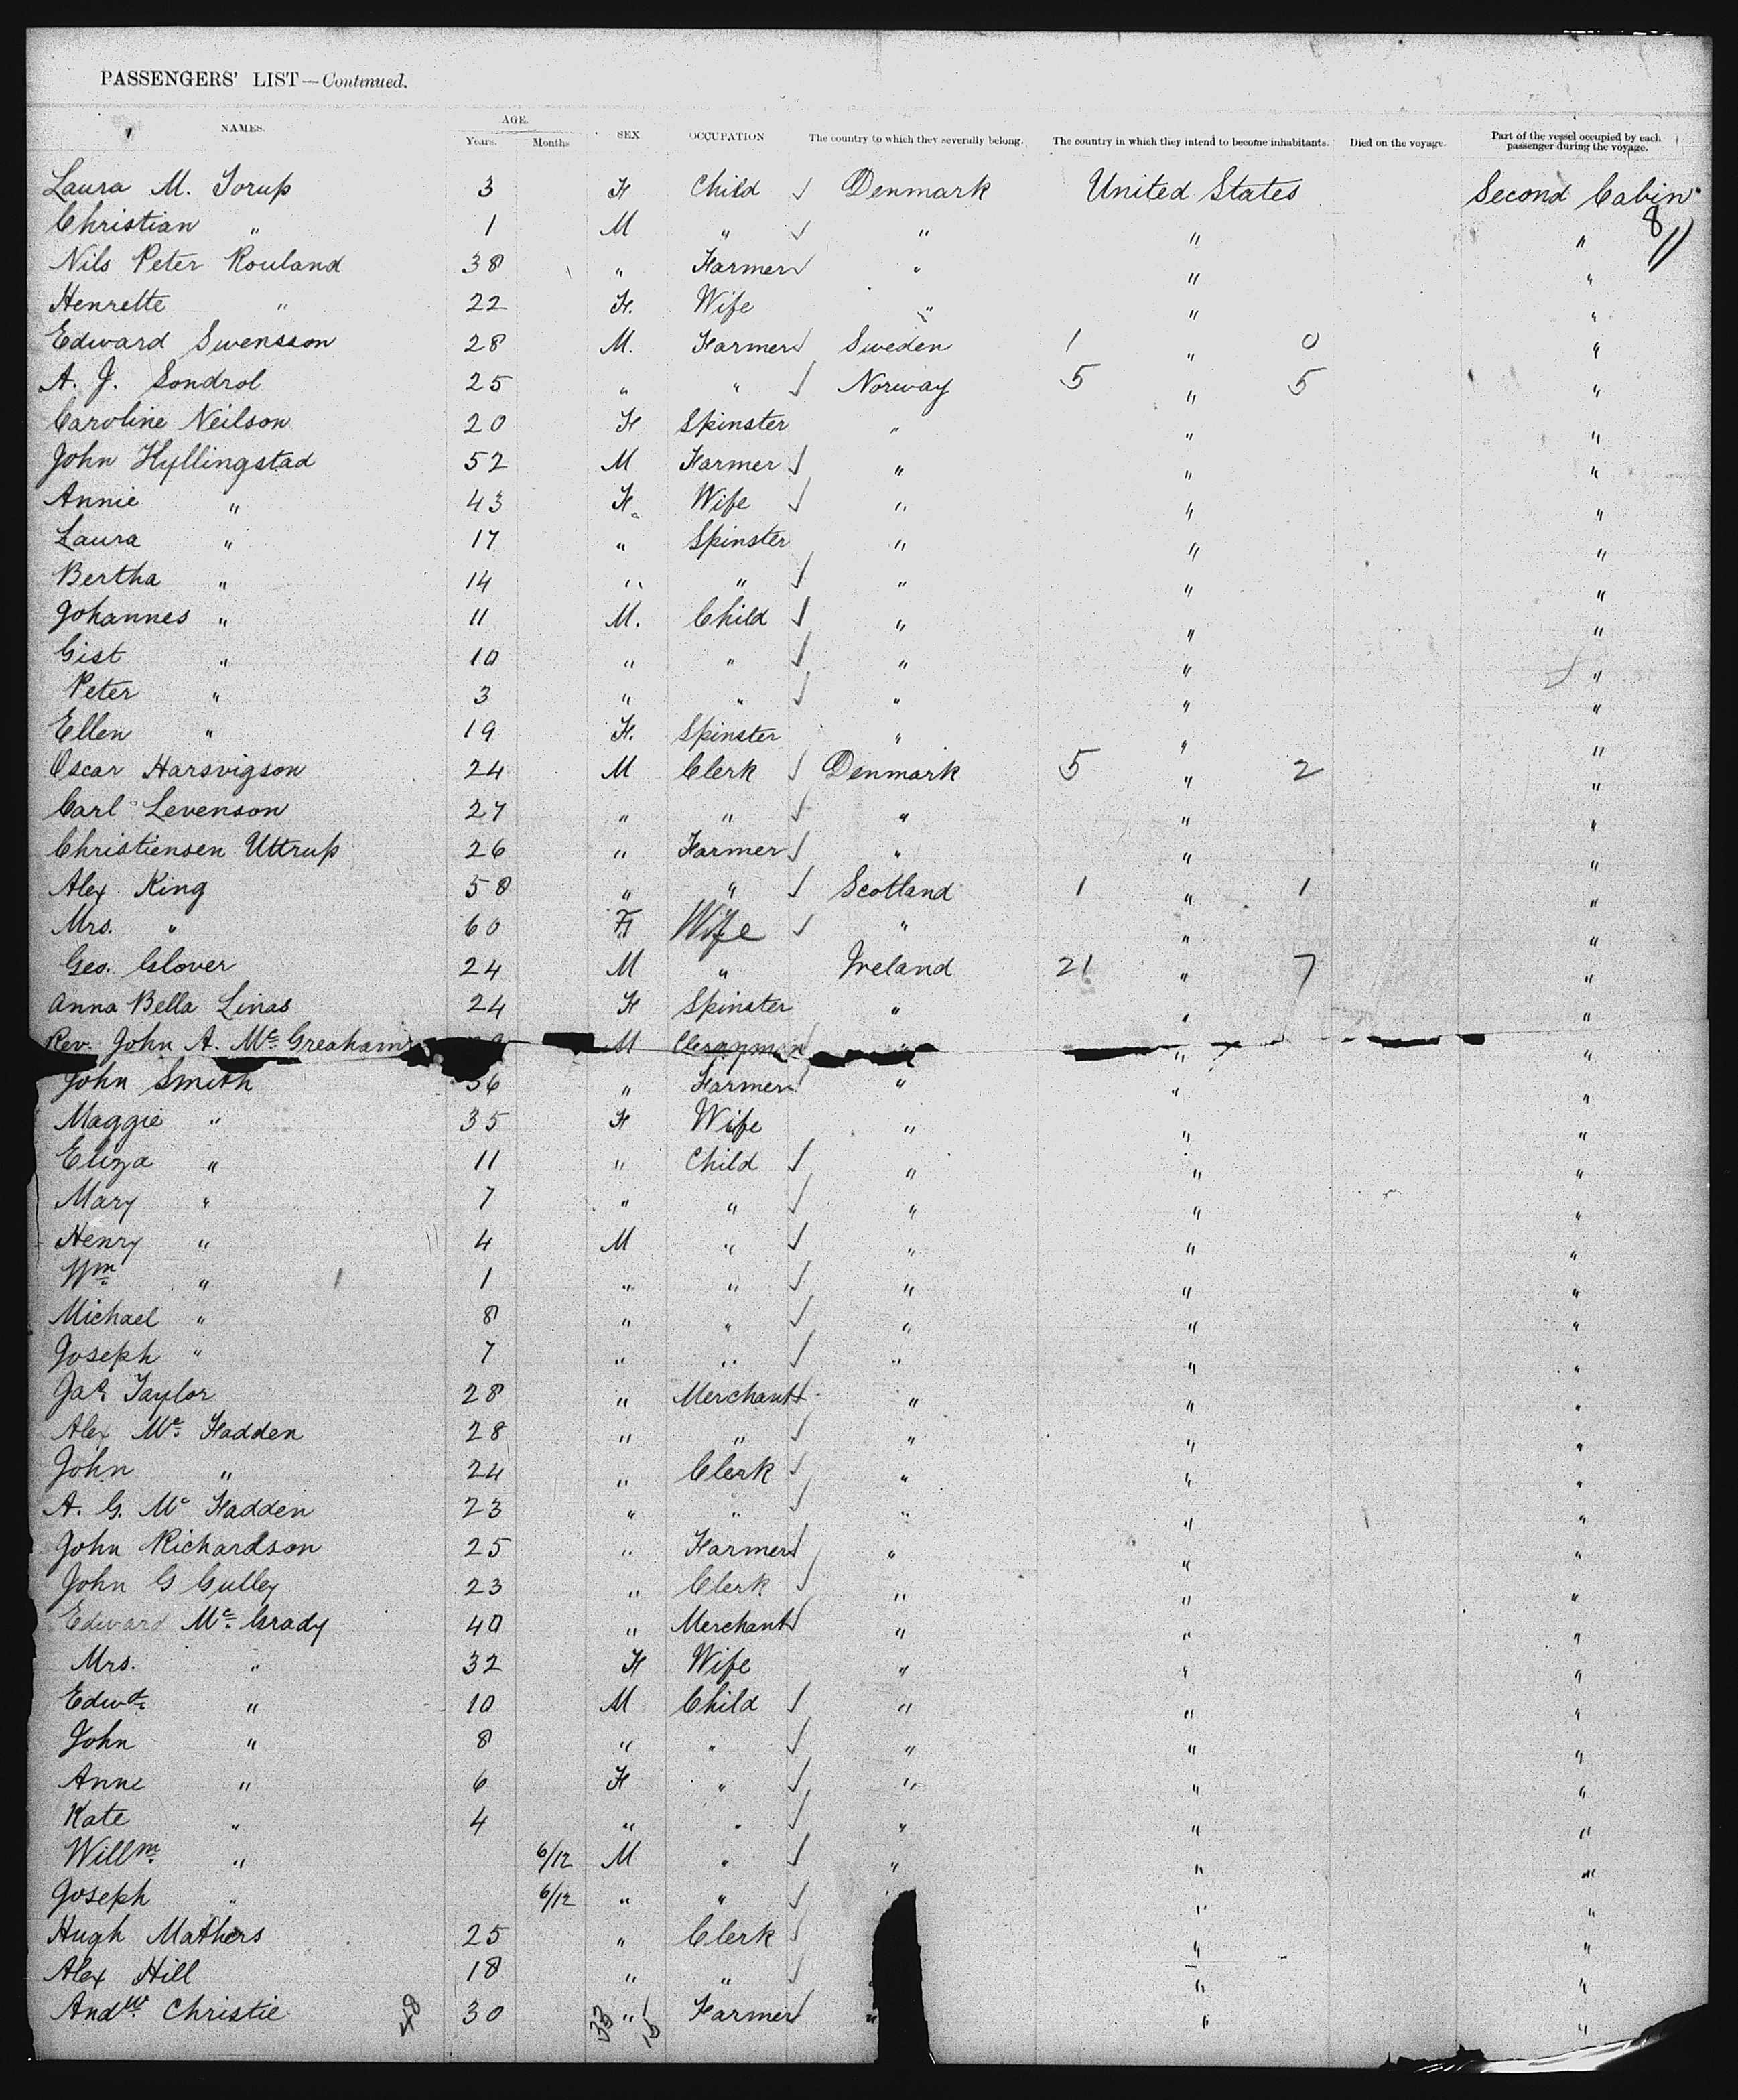 PASSENGERS' LIST—Continued.
NAMES. AGE. Years. Months SEX OCCUPATION The country to which they severally belong. The country in which they intend to become inhabitants. Died on the voyage. Part of the vessel occupied by each passenger during the voyage.
Laura M. Torup 3 F Child √ Denmark United States Second Cabin
Christian " 1 M " √ " " " 8 11
Nils Peter Rouland 38 " Farmer √ " " "
Henrette " 22 F. Wife " " "
Edward Swensson 28 M. Farmer √ Sweden 1 " 0 "
A. J. Sondrol 25 " " √ Norway 5 " 5 "
Caroline Neilson 20 F Spinster " " "
John Hyllingstad 52 M Farmer √ " " "
Annie " 43 F. Wife √ " " "
Laura " 17 " Spinster " " "
Bertha " 14 " " √ " " "
Johannes " 11 M. Child √ " " "
Gist " 10 " " √ " " "
Peter " 3 " " √ " " "
Ellen " 19 F. Spinster " " "
Oscar Harsvigson 24 M Clerk √ Denmark 5 " 2 "
Carl Levenson 27 " " √ " " "
Christiensen Uttrup 26 " Farmer √ " " "
Alex King 58 " " √ Scotland 1 " 1 "
Mrs. " 60 F Wife √ " " "
Geo. Glover 24 M " Ireland 21 " 7 "
Anna Bella Linas 24 F Spinster " " "
Rev. John A. Mc Greaham M Clergyman √ " " "
John Smith 36 " Farmer √ " " "
Maggie " 35 F Wife " " "
Eliza " 11 " Child √ " " "
Mary " 7 " " √ " " "
Henry " 4 M " √ " " "
Wm " 1 " " √ " " "
Michael " 8 " " √ " " "
Joseph " 7 " " √ " " "
Jas Taylor 28 " Merchant √ " " "
Alex Mc Fadden 28 " " √ " " "
John " 24 " Clerk √ " " "
A. G. Mc Fadden 23 " " √ " " "
John Richardson 25 " Farmer √ " " "
John G Gulley 23 " Clerk √ " " "
Edward Mc Grady 40 " Merchant √ " " "
Mrs. " 32 F Wife " " "
Edwd " 10 M Child √ " " "
John " 8 " " √ " " "
Anne " 6 F " √ " " "
Kate " 4 " " √ " " "
Willm " 6/12 M " √ " " "
Joseph " 6/12 " " √ " "
Hugh Mathers 25 " Clerk √ " "
Alex Hill 18 " " √ " "
Andw Christie 48 30 33 " 15 Farmer √ " " "